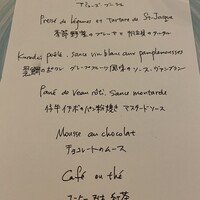 Pressé de légumes et tartare de St-Jacque
季節野菜のプレッセと帆立貝のタルタル
Kurodai poêlé, sauce vin blanc aux pamplemousses
黒鯛のポワレ グレープフルーツ風味のソース・ヴァンブラン
Pané de veau rôti, sauce moutarde
仔牛イチボのパン粉焼き マスタードソース
Mousse au chocolat
チョコレートのムース
Café ou thé
コーヒー又は紅茶